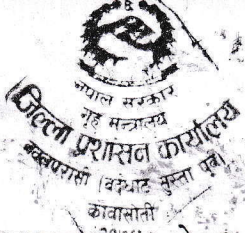 नेपाल सरकार
गृह मन्त्रालय
जिल्ला प्रशासन कार्यालय
नवलपरासी (बर्दघाट सुस्ता पूर्व)
कावासोती